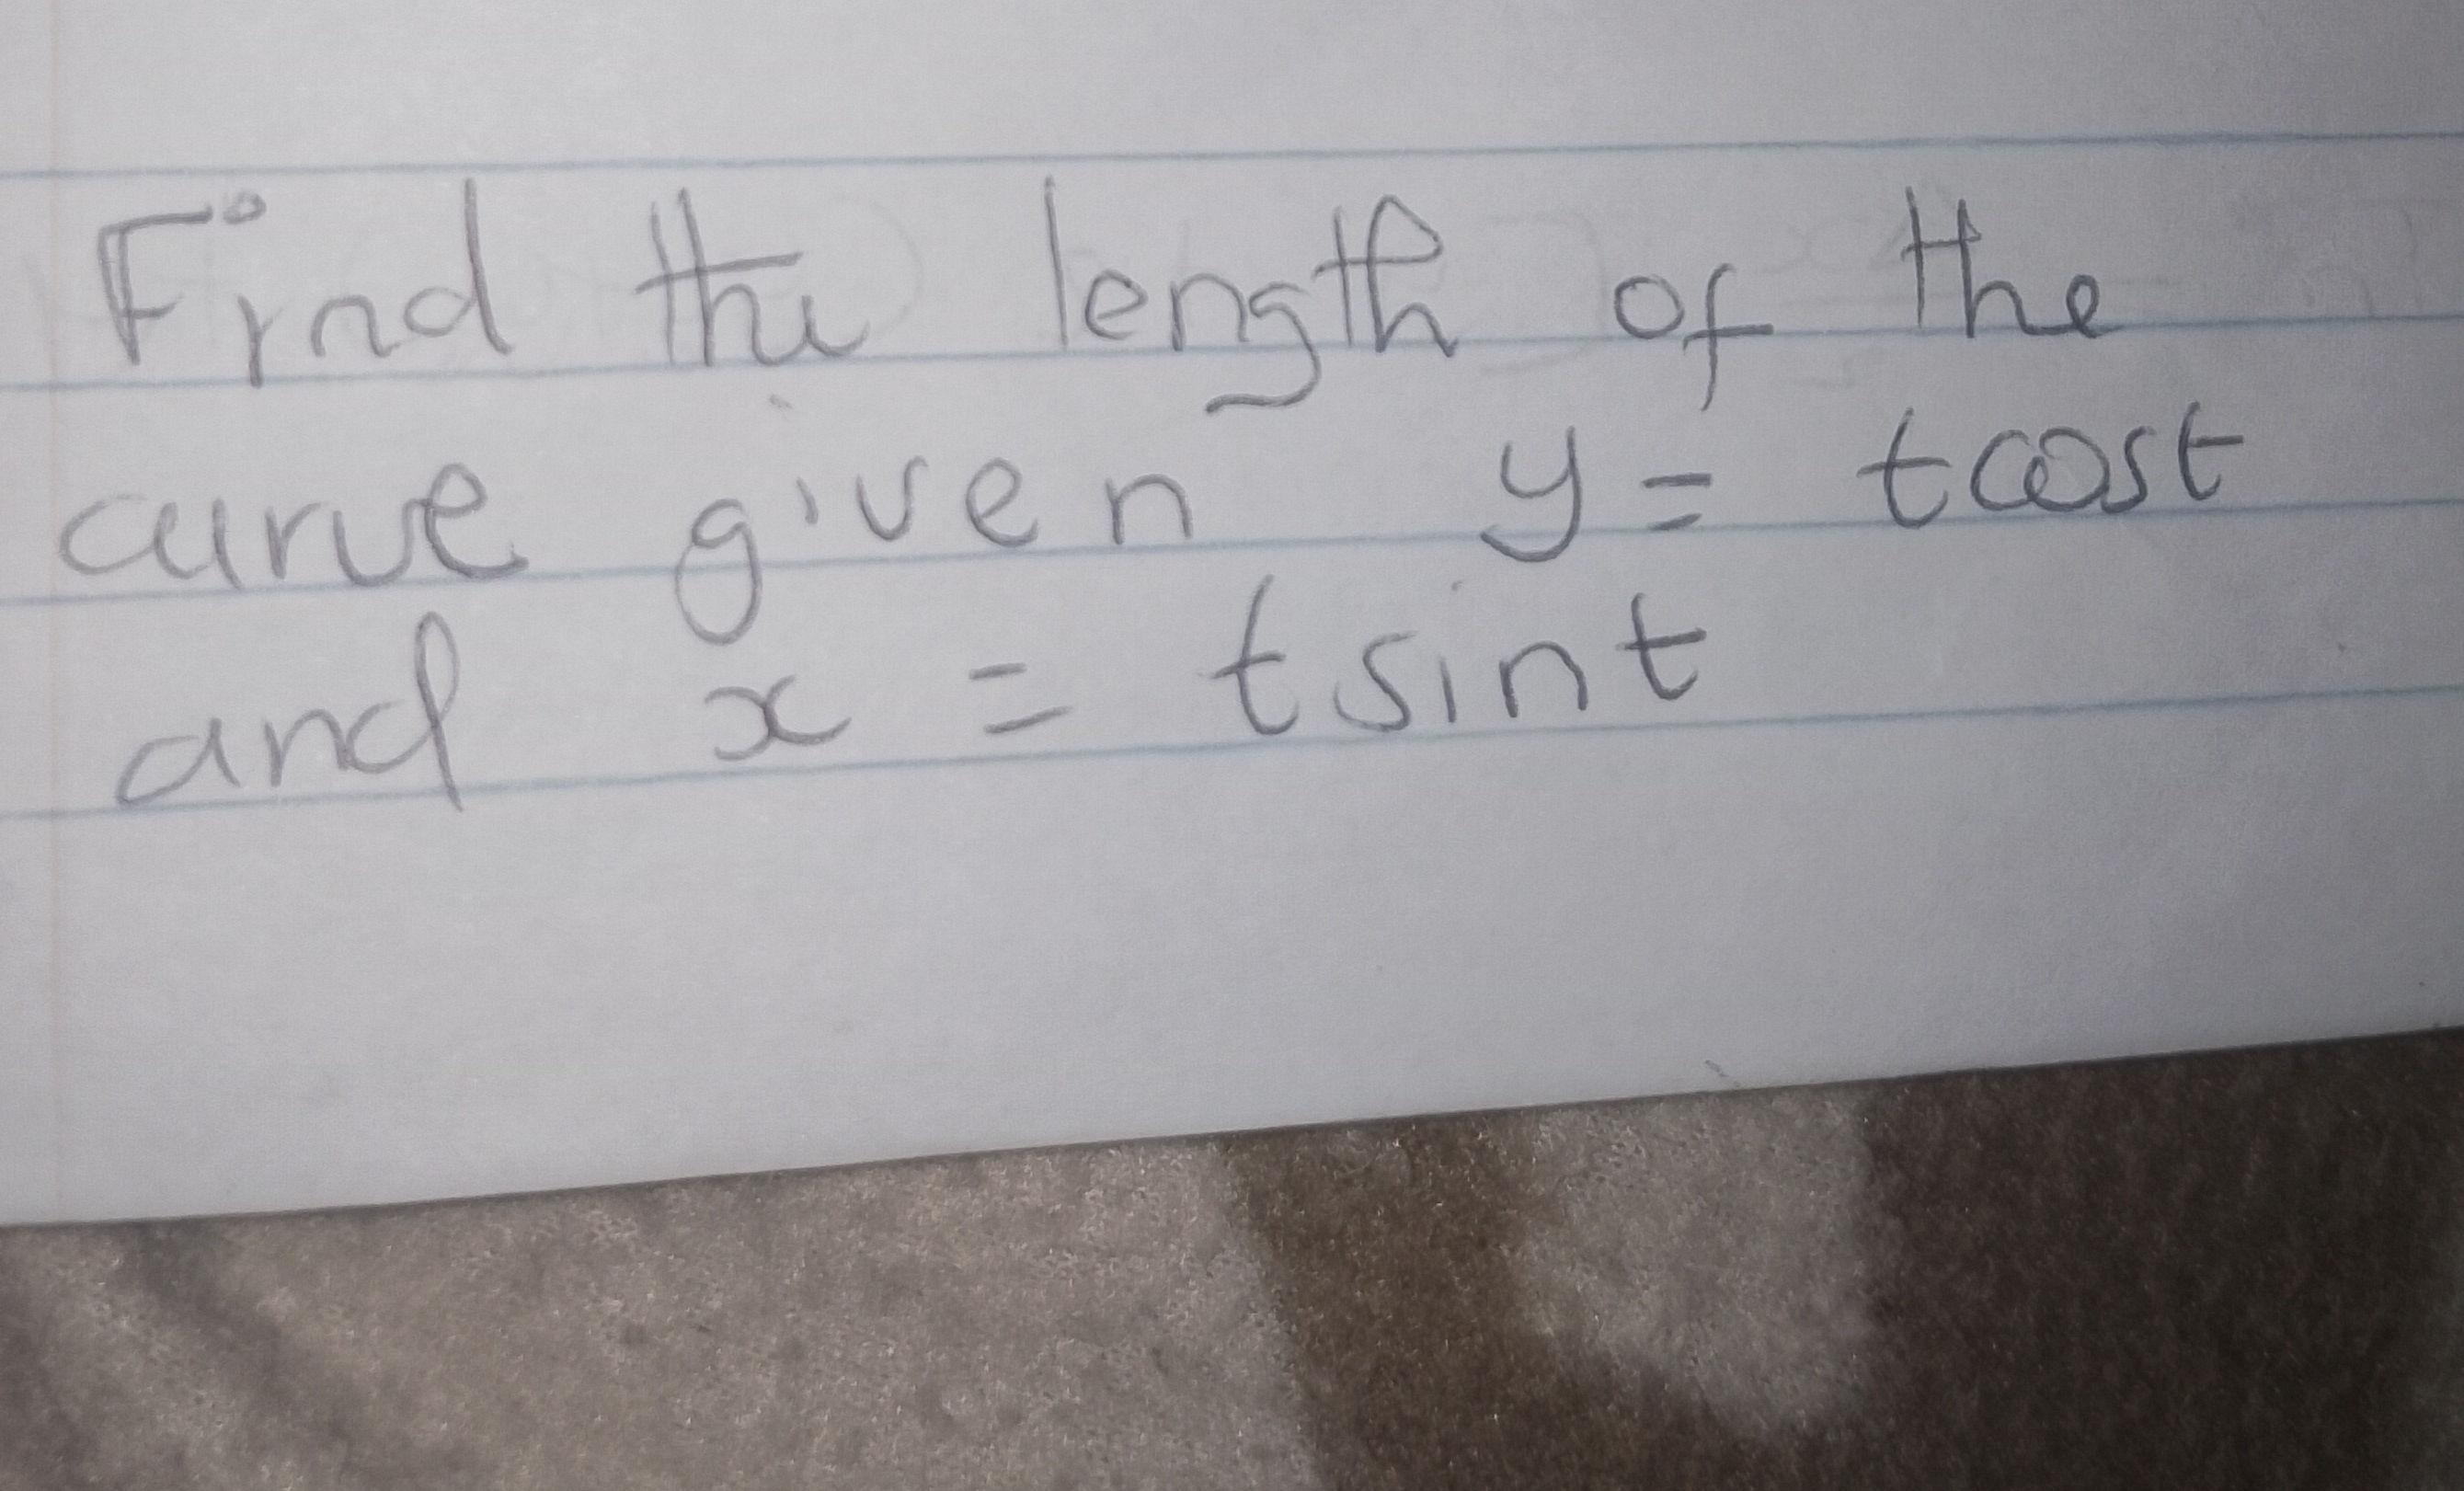 Find the length of the
curve given y = tcost
and x = tsint